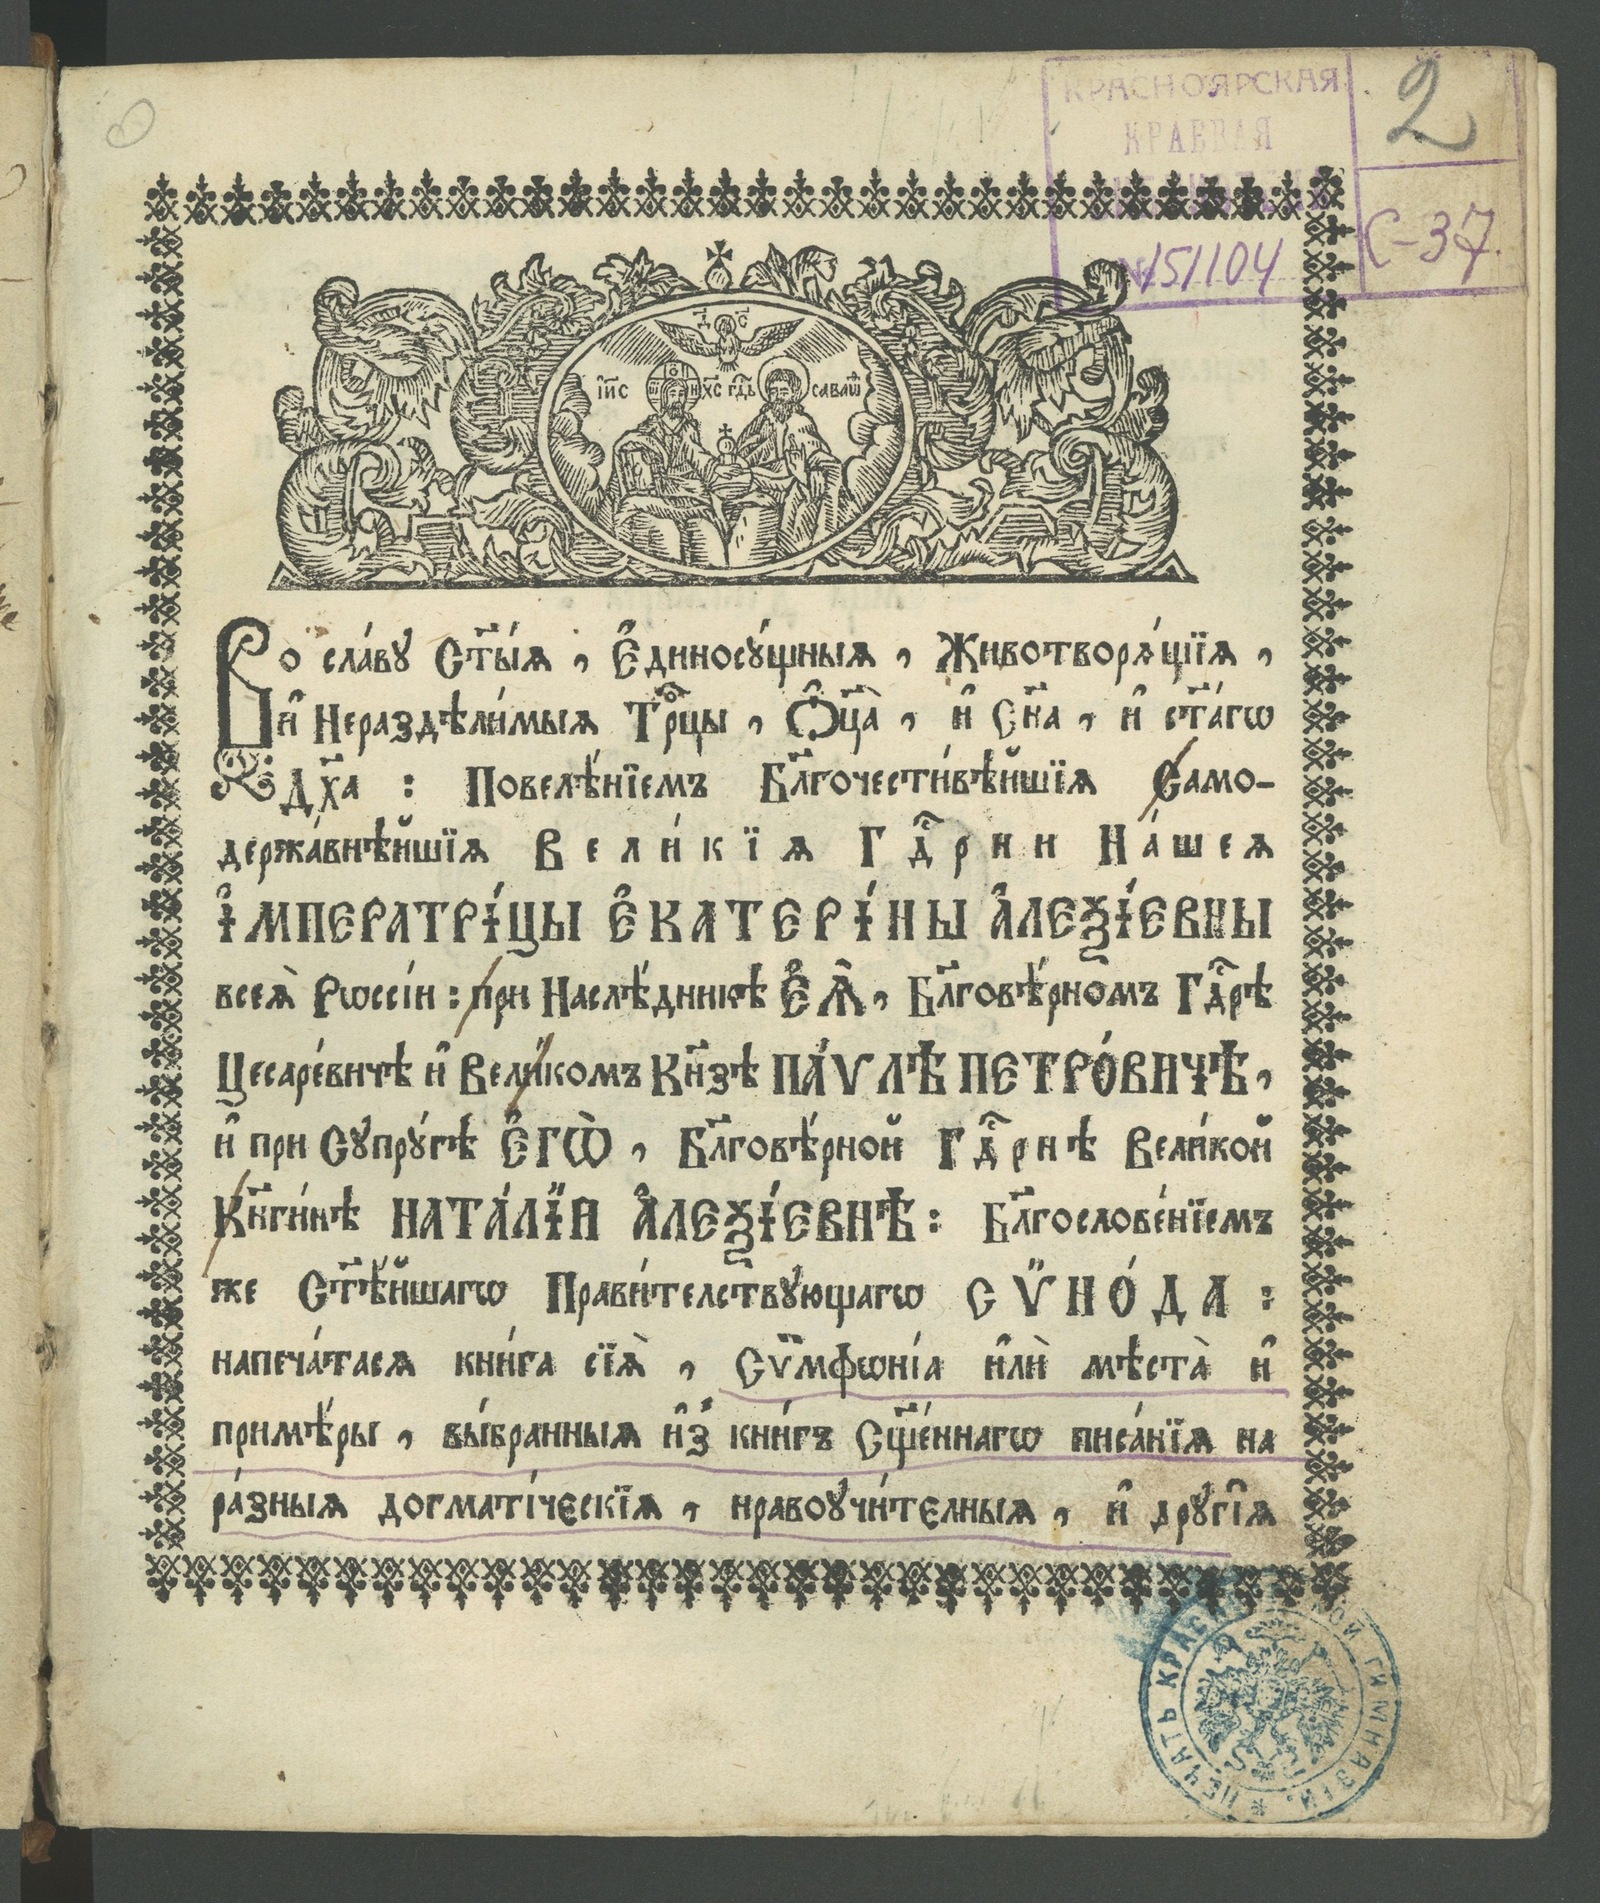 КРАСНОЯРСКАЯ
КРАЕВАЯ
2
№ 151104
С-37.
І҆И҃С ХС ГД҇Ь САВАѠ҆
Во сла́ву Ст҃ы́ѧ , Е҆диносꙋ́щныѧ , Животворѧ́щїѧ ,
и҆ Нераздѣли́мыѧ Тр҇о́цы , Ѻ҆ц҃а̀ , и҆ Сн҃а , и҆ ст҃а́гѡ
Дх҃а : Повелѣ́нїемъ Бл҃гочести́вѣйшїѧ Само-
держа́внѣйшїѧ Вели́кїѧ Гд҇рни На́шеѧ
І҆МПЕРАТРІ́ЦЫ Е҆КАТЕРІ́НЫ А҆ЛЕѮІ́ЕВНЫ
всеѧ̀ Рѡссі́и : при Наслѣ́дникѣ Е҆Ѧ̀ , Бл҃говѣ́рномъ Гд҇рѣ
Цесаре́вичѣ и҆ Вели́комъ Кн҃зѣ ПА́ѴЛѢ ПЕТРО́ВИЧѢ ,
и҆ при Сꙋпрꙋ́гѣ Е҆ГѠ̀ , Бл҃говѣ́рной Гд҇рнѣ Вели́кой
Кн҃ги́нѣ НАТА́ЛЇИ А҆ЛЕѮІ́ЕВНѢ : Бл҃гослове́нїемъ
же Ст҃ѣ́йшагѡ Прави́телствꙋющагѡ СѴ̈НО́ДА :
напеча́тасѧ кни́га сїѧ̀ , Сѵ̈мфѡні́а и҆лѝ мѣста̀ и҆
примѣ́ры , вы́бранныѧ и҆з̾ кни́гъ Сщ҃е́ннагѡ писа́нїѧ на
ра́зныѧ догмати́ческїѧ , нравоꙋчи́телныѧ , и҆ дрꙋгі̑ѧ
ПЕЧАТЬ КРАСНОЯРСКОЙ ГИМНАЗІИ